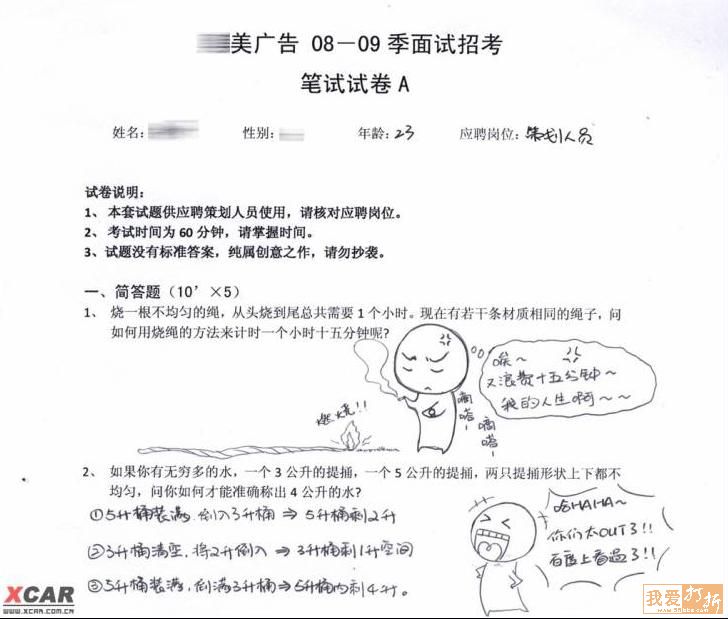 美广告 08-09 季面试招考
笔试试卷 A
姓名: 性别: 年龄: 23 应聘岗位: 策划人员
试卷说明:
1、 本套试题供应聘策划人员使用,请核对应聘岗位。
2、 考试时间为 60 分钟,请掌握时间。
3、试题没有标准答案,纯属创意之作,请勿抄袭。
一、简答题(10’×5)
1、 烧一根不均匀的绳,从头烧到尾总共需要 1 个小时。现在有若干条材质相同的绳子,问
如何用烧绳的方法来计时一个小时十五分钟呢?
唉~
又浪费十五分钟~
我的人生啊~~
嘀嗒-
嘀嗒-
燃烧!!
2、 如果你有无穷多的水,一个 3 公升的提捅,一个 5 公升的提捅,两只提捅形状上下都不
均匀,问你如何才能准确称出 4 公升的水?
①5升桶装满,倒入3升桶⇒5升桶剩2升
②3升桶清空,将2升倒入⇒3升桶剩1升空间
③5升桶装满,倒满3升桶⇒5升桶内剩4升。
哈HAHA~
你们太OUT了!!
百度上看过了!!
XCAR
WWW.XCAR.COM.CN
我爱打折